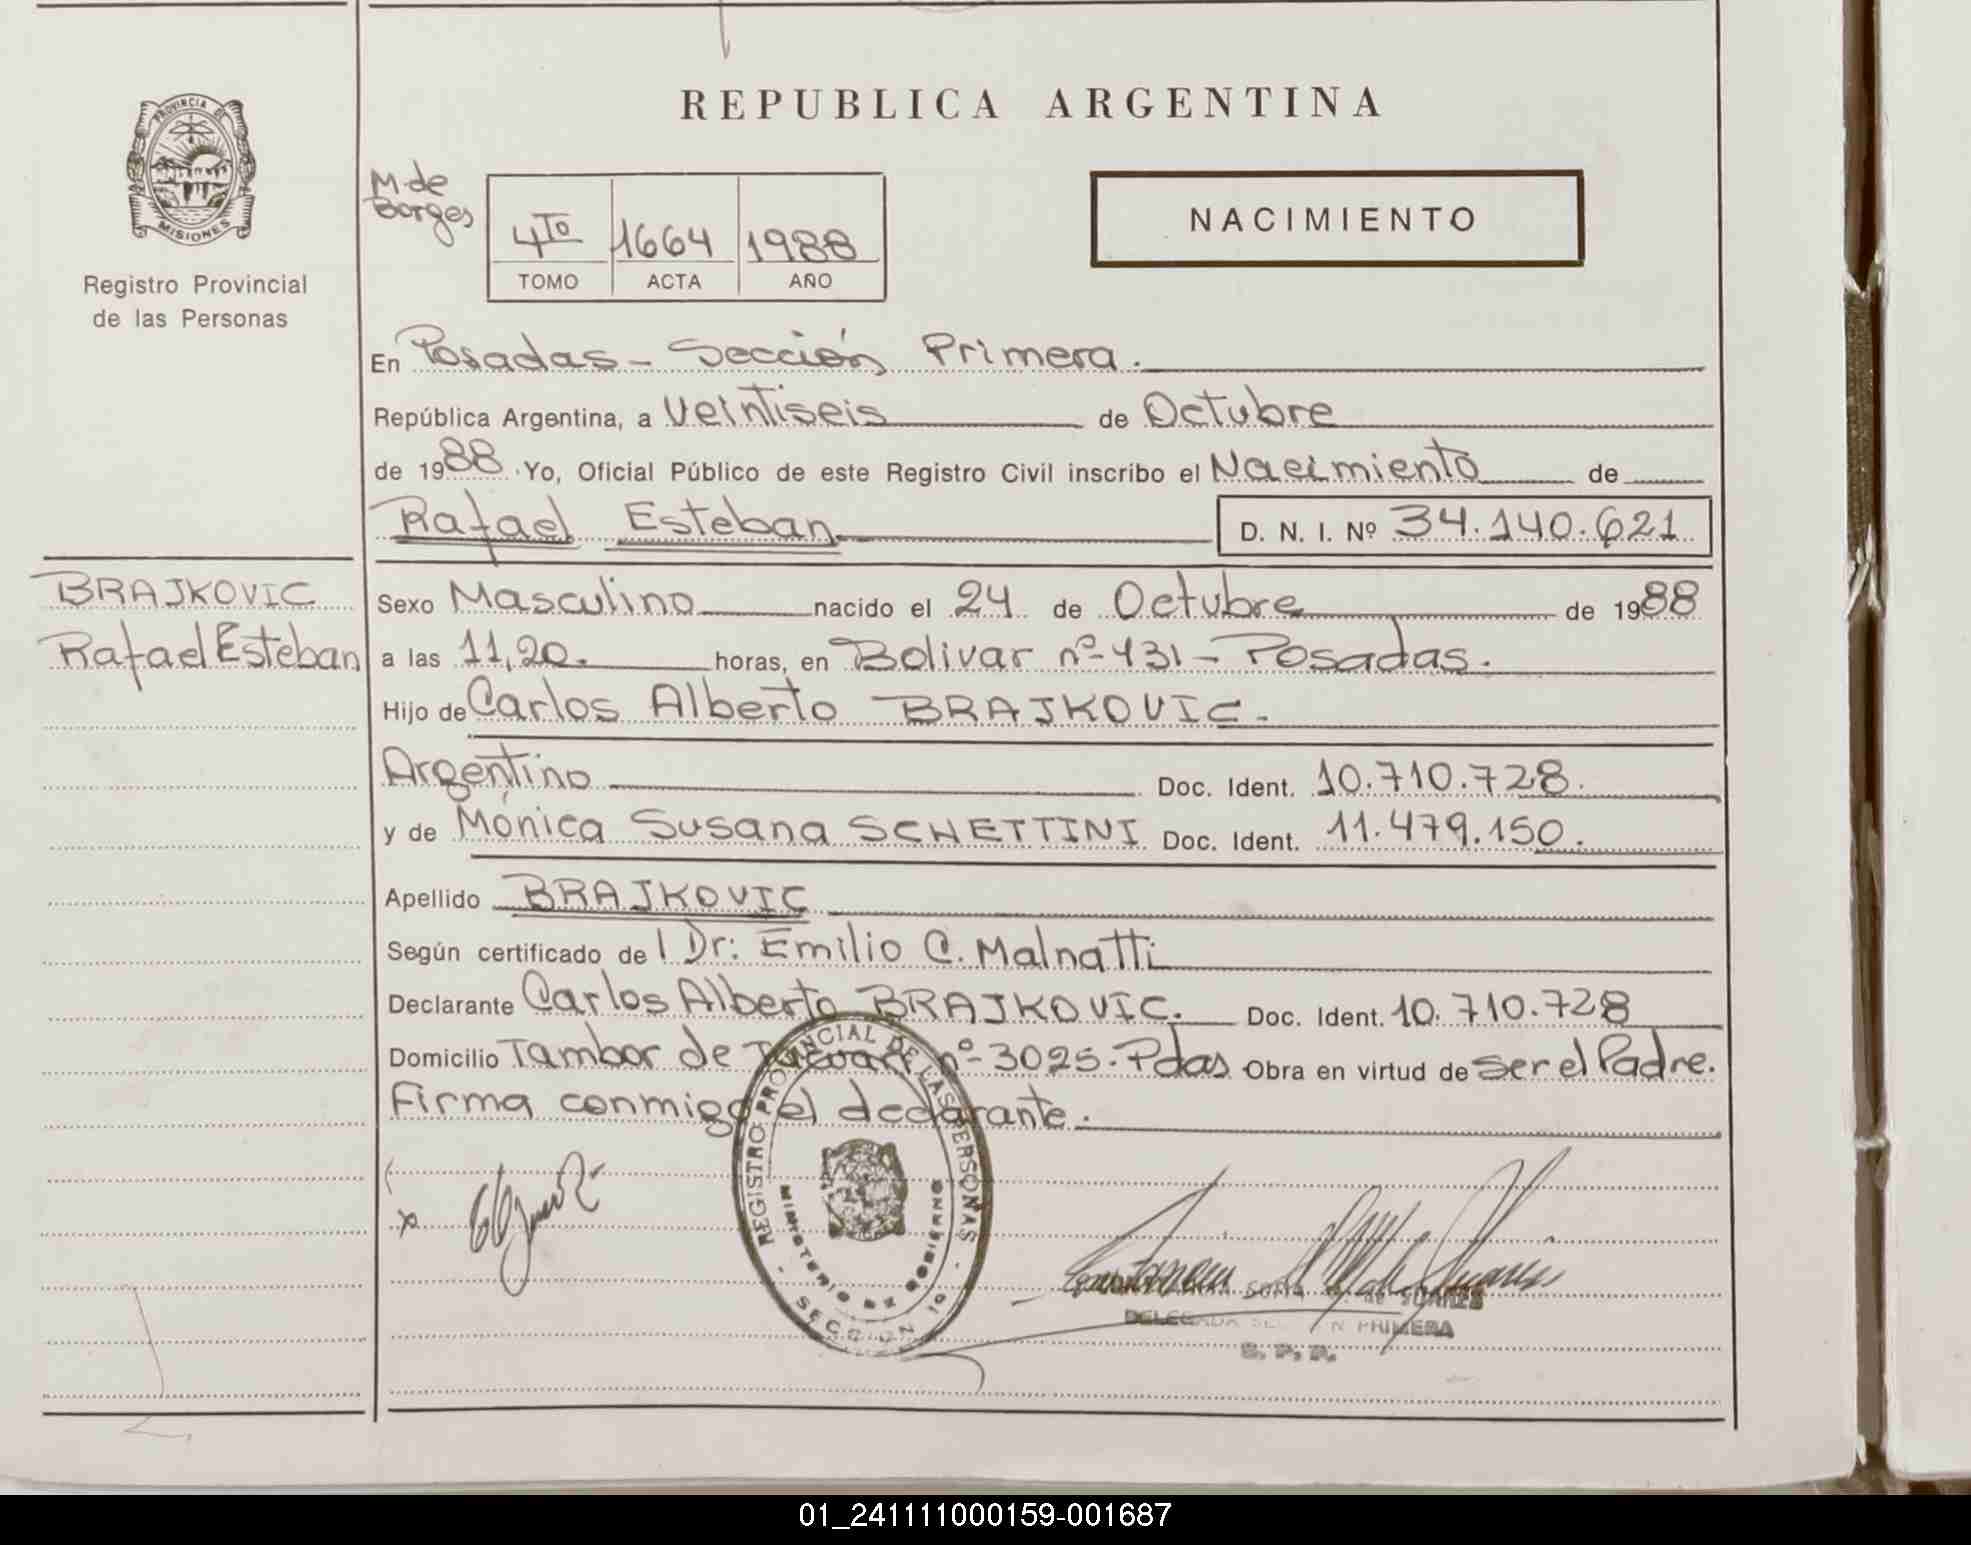 REPUBLICA ARGENTINA
PROVINCIA DE
MISIONES
Registro Provincial
de las Personas
M. de
Borges
4To 1664 1988
TOMO ACTA AÑO
NACIMIENTO
En Posadas - Sección Primera.
República Argentina, a Veintiseis de Octubre
de 1988. Yo, Oficial Público de este Registro Civil inscribo el Nacimiento de
Rafael Esteban D. N. I. Nº 34.140.621
BRAJKOVIC
Rafael Esteban
Sexo Masculino nacido el 24 de Octubre de 1988
a las 11,20. horas, en Bolivar nº 431 - Posadas.
Hijo de Carlos Alberto BRAJKOVIC.
Argentino Doc. Ident. 10.710.728.
y de Mónica Susana SCHETTINI Doc. Ident. 11.479.150.
Apellido BRAJKOVIC
Según certificado del Dr: Emilio C. Malnatti
Declarante Carlos Alberto BRAJKOVIC. Doc. Ident. 10.710.728
Domicilio Tambor de Tacuarí nº 3025. Pdas Obra en virtud de ser el Padre.
Firma conmigo el declarante.
REGISTRO PROVINCIAL DE LAS PERSONAS
MINISTERIO DE GOBIERNO
SECCION
DELEGADA SECCION PRIMERA
R. P. P.
01_241111000159-001687